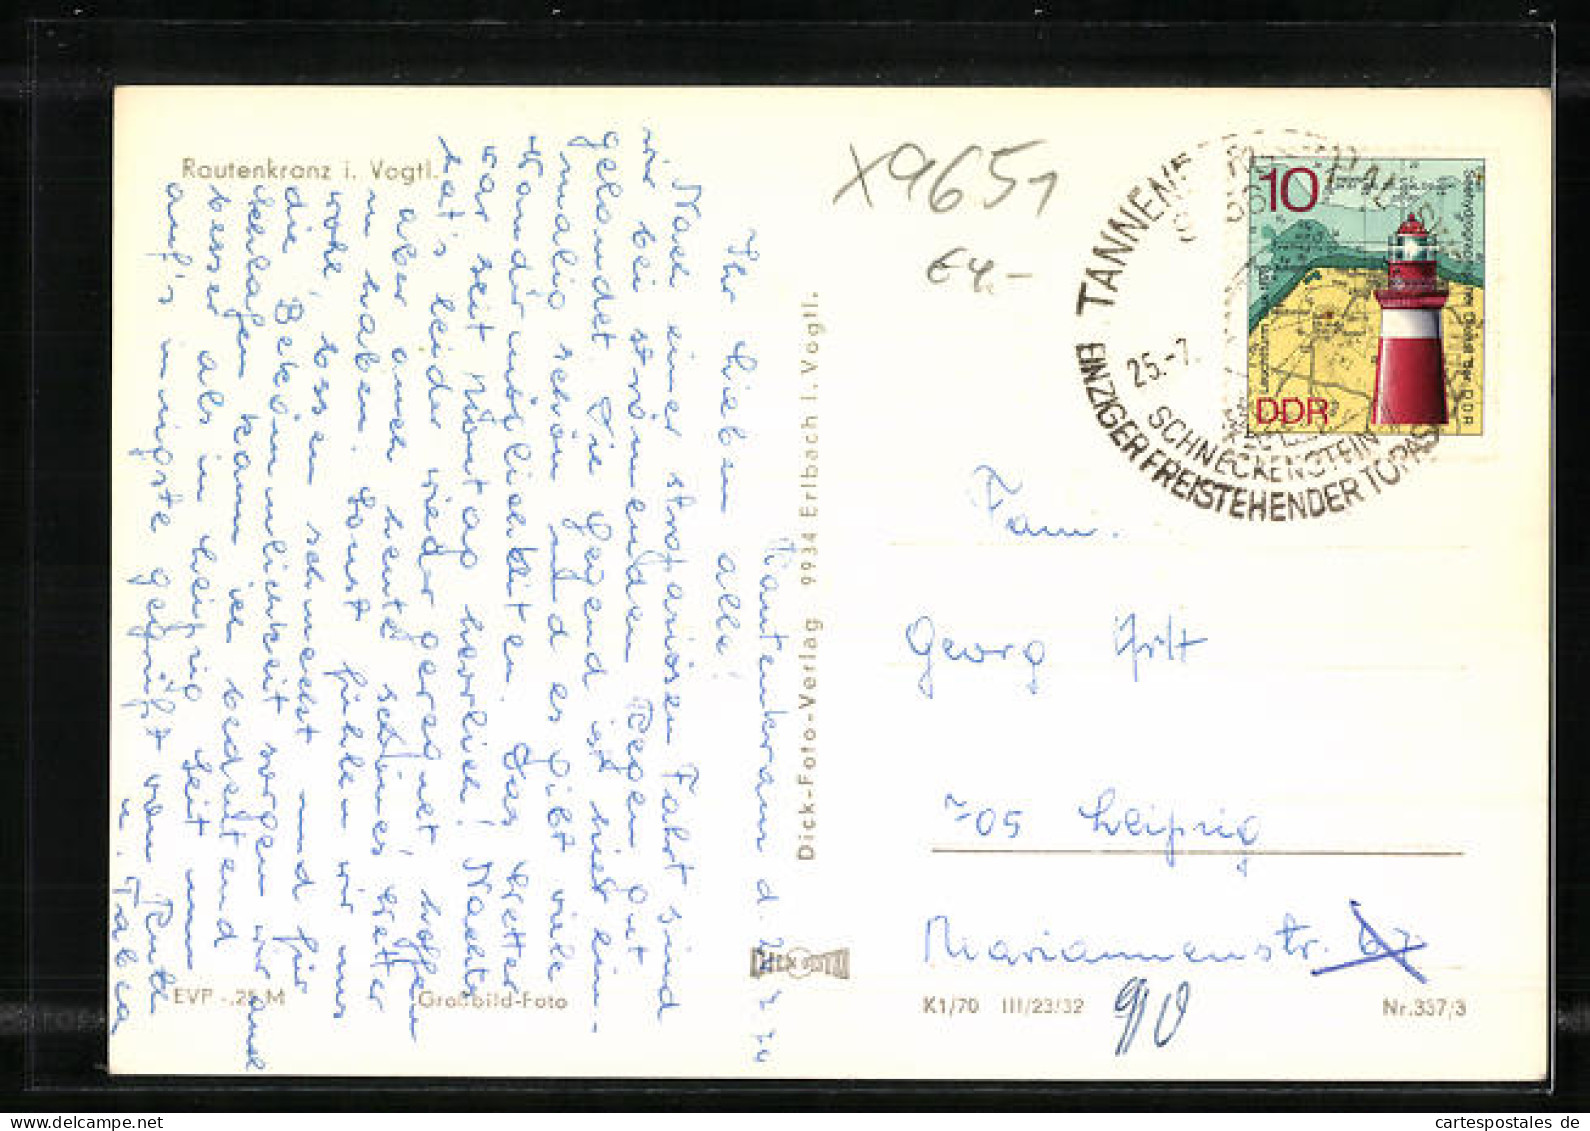 Rautenkranz i. Vogtl.
Rautenkranz d. 24.7.74
Ihr Lieben alle!
Nach einer strapaziösen Fahrt sind
wir bei strömenden Regen gut
gelandet. Die Gegend ist hier ein-
malig schön und es gibt viele
Wandermöglichkeiten. Das Wetter
war seit Montag herrlich! Nachts
hat's leider wieder geregnet, hoffen
aber auch heute schönes Wetter
zu haben. Sonst fühlen wir uns
wohl, Essen schmeckt und für
die Bekömmlichkeit sorgen wir auch
schlafen kann ich bedeutend
besser als in Leipzig. Seit nun
auf's innigste gegrüßt von Ruth
u.
EVP -.25 M
Großbild-Foto
Dick-Foto-Verlag 9934 Erlbach i. Vogtl.
DICK FOTO
X9651
€4.-
TANNENB
25.-7.
SCHNECKENSTEIN
EINZIGER FREISTEHENDER TOPAS
10
DDR
Leuchtturm
Fam.
Georg
705 Leipzig
Mariannenstr. 67
K1/70 III/23/32
Nr.337/3
cartespostales.de